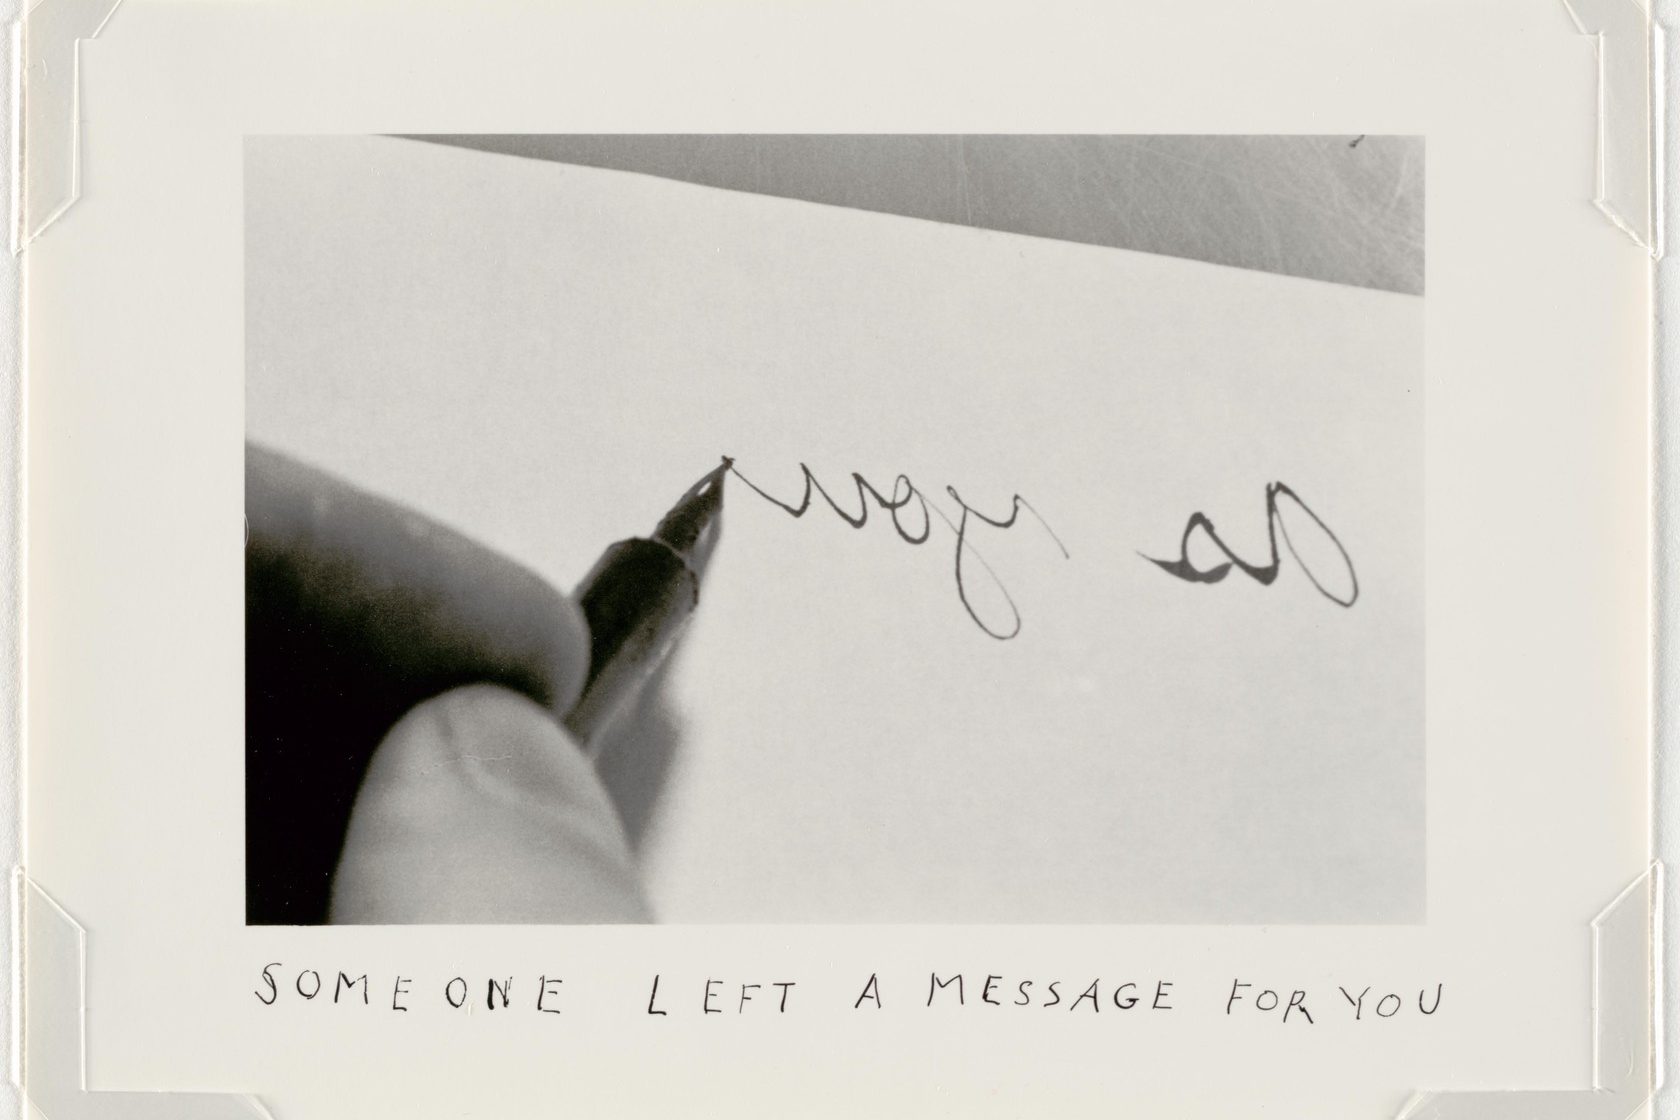 As you
SOMEONE LEFT A MESSAGE FOR YOU